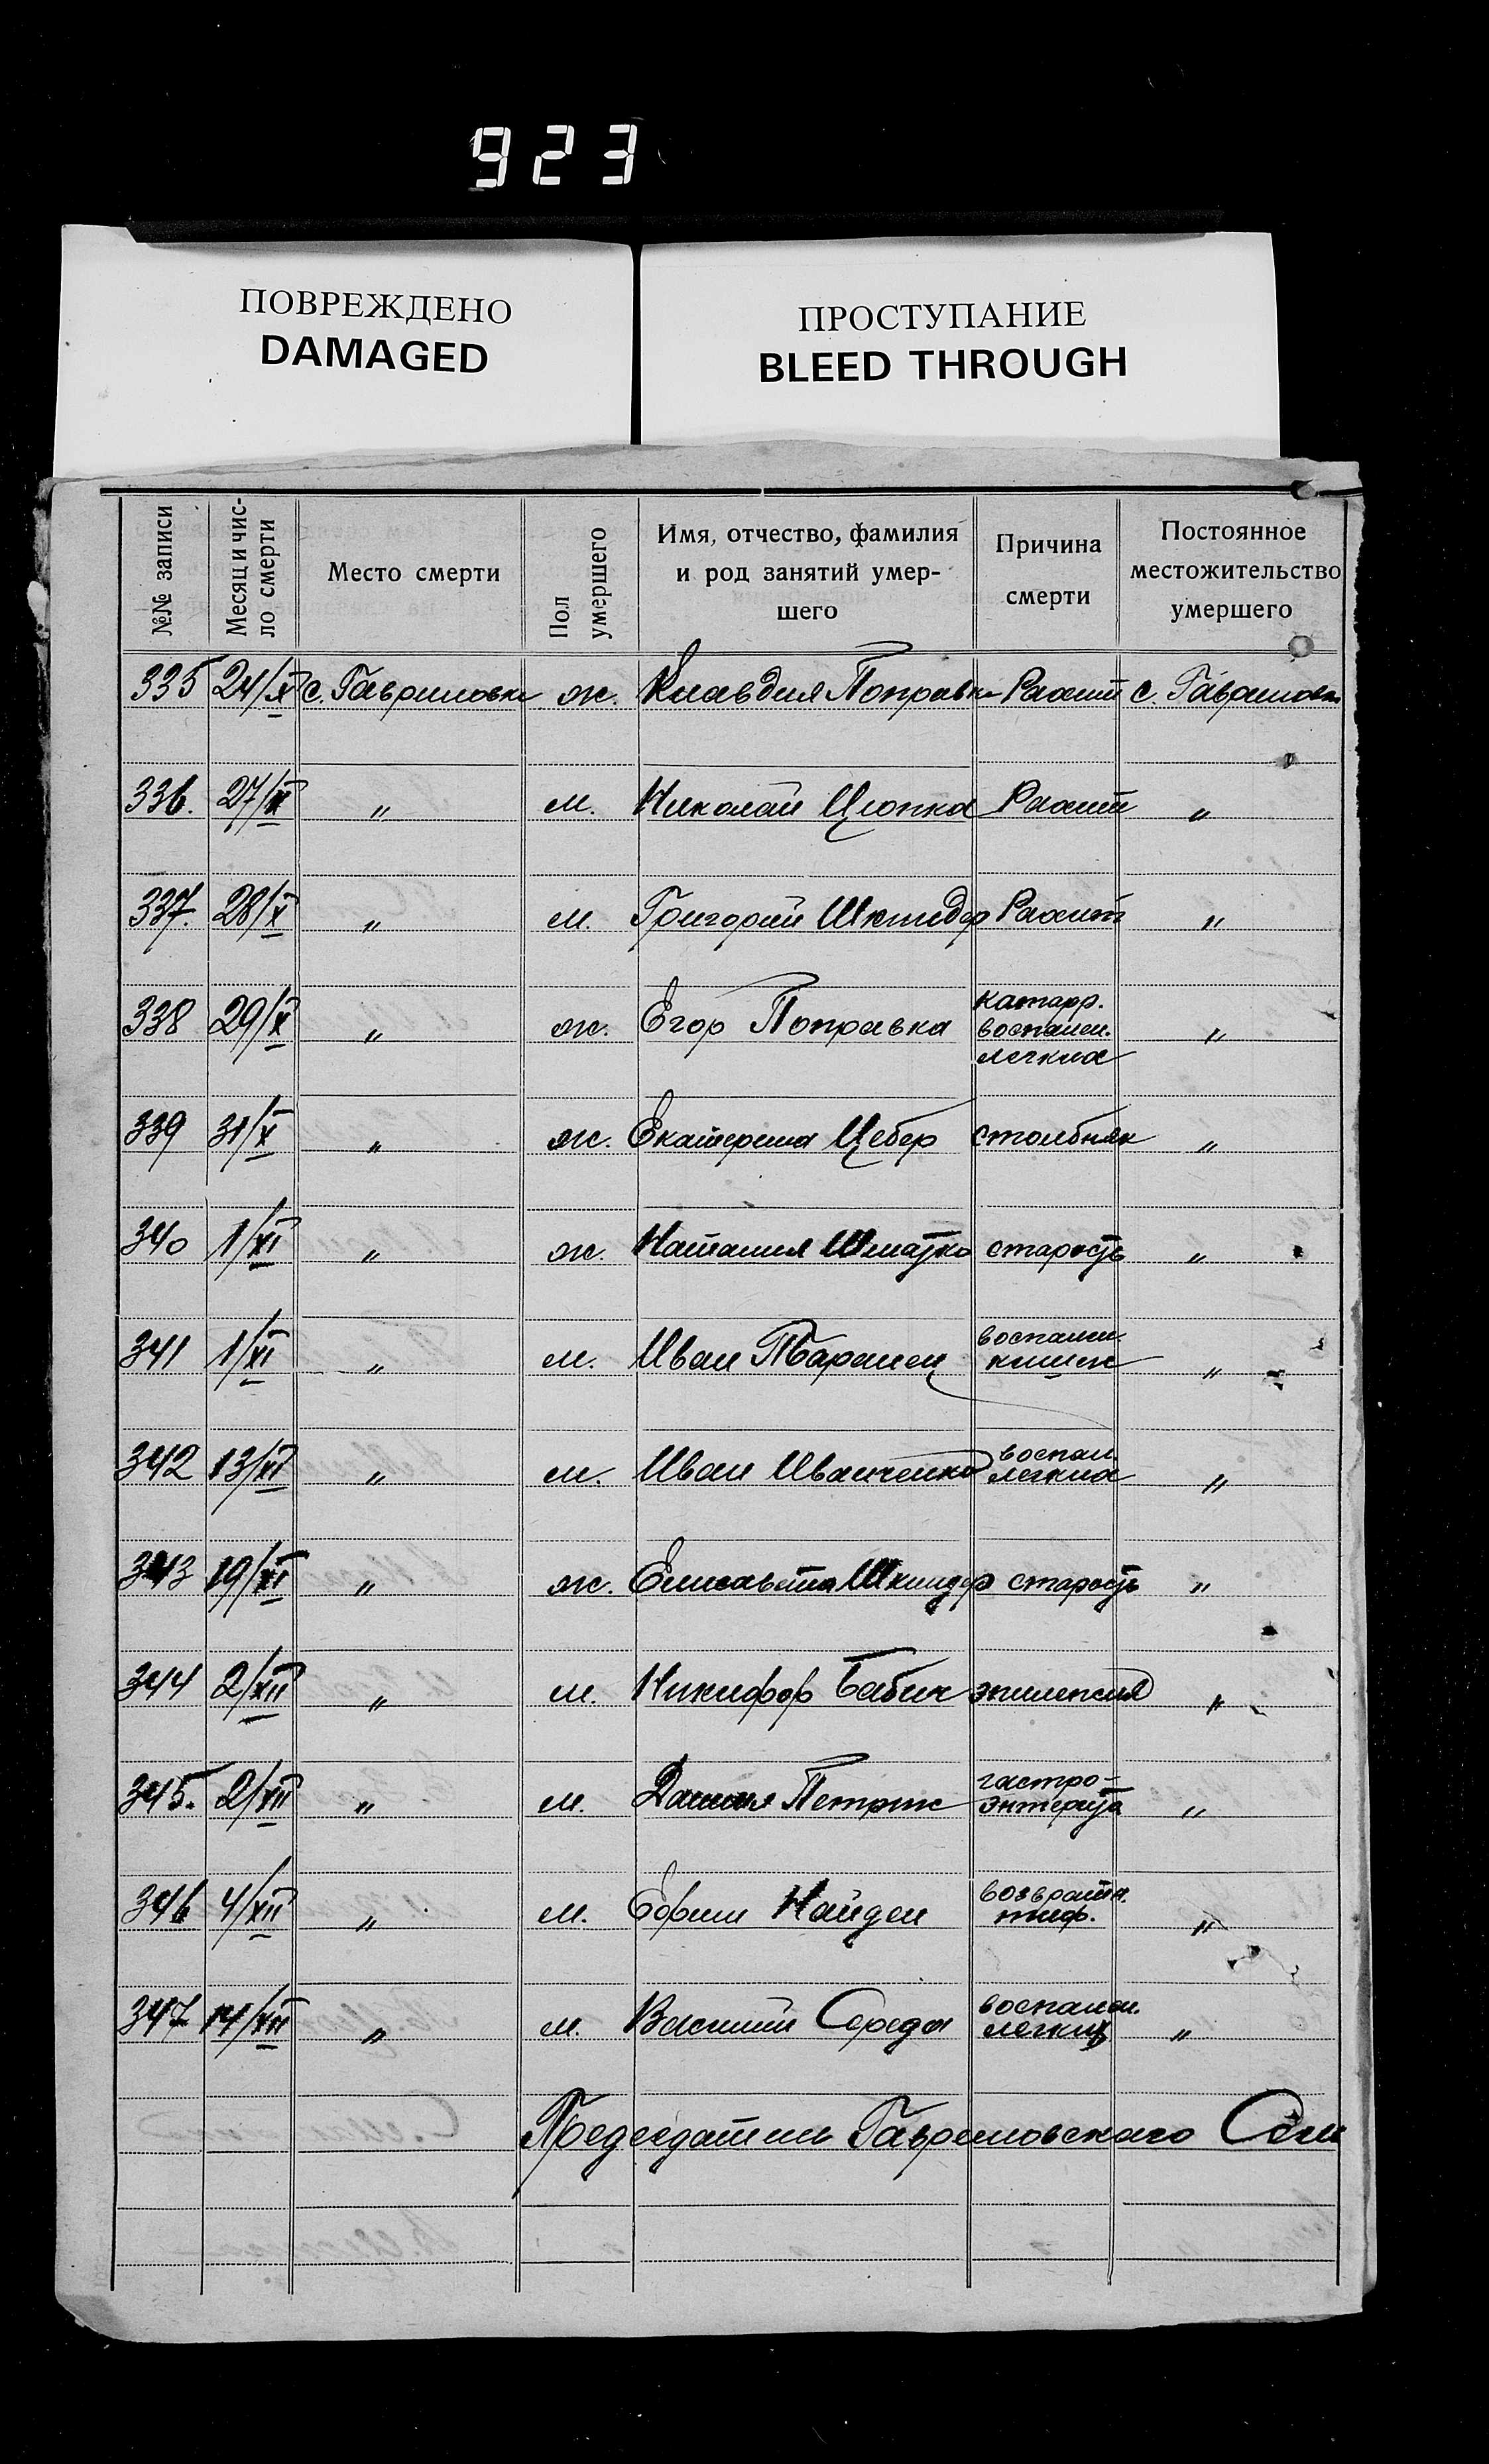 923
ПОВРЕЖДЕНО
DAMAGED
ПРОСТУПАНИЕ
BLEED THROUGH
№№ записи
Месяц и чис-
ло смерти
Место смерти
Пол
умершего
Имя, отчество, фамилия
и род занятий умер-
шего
Причина
смерти
Постоянное
местожительство
умершего
335 24/X с. Гавриловка ж. Клавдия Поправка Рахит с. Гавриловка
336. 27/X " м. Николай Цюпка Рахит "
337. 28/X " м. Григорий Рахит "
338 29/X " ж. Егор Поправка
катарр.
воспален.
легких "
339 31/X " ж. Екатерина Цебер столбняк "
340 1/XI " ж. Наталия Шматко старость "
341 1/XI " м. Иван Таранец
воспален.
кишек "
342 13/XI " м. Иван Иванченко
воспал.
легких "
343 19/XI " ж. Елисавета Шкиндер старость "
344 2/XII " м. Никифор Бабич эпилепсия "
345. 2/XII " м. Петрик
гастро-
энтерита "
346 4/XII " м. Ефим Найден
возвратн.
тиф. "
347 14/XII " м. Василий Середа
воспален.
легких "
Председатель Гавриловского